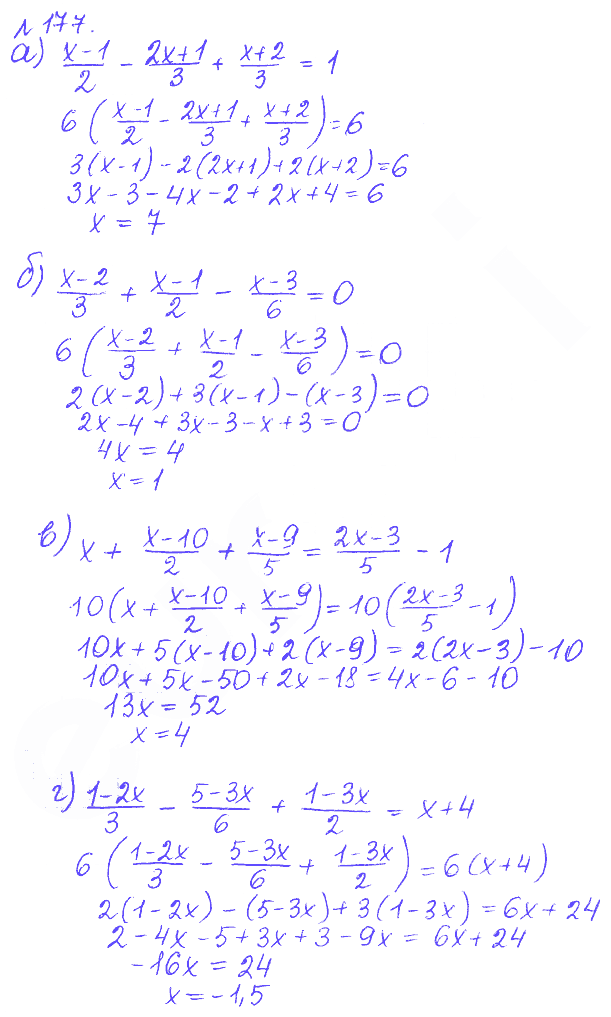 № 177.
а) (x-1)/2 - (2x+1)/3 + (x+2)/3 = 1
6((x-1)/2 - (2x+1)/3 + (x+2)/3) = 6
3(x-1) - 2(2x+1) + 2(x+2) = 6
3x - 3 - 4x - 2 + 2x + 4 = 6
x = 7
б) (x-2)/3 + (x-1)/2 - (x-3)/6 = 0
6((x-2)/3 + (x-1)/2 - (x-3)/6) = 0
2(x-2) + 3(x-1) - (x-3) = 0
2x - 4 + 3x - 3 - x + 3 = 0
4x = 4
x = 1
в) x + (x-10)/2 + (x-9)/5 = (2x-3)/5 - 1
10(x + (x-10)/2 + (x-9)/5) = 10((2x-3)/5 - 1)
10x + 5(x-10) + 2(x-9) = 2(2x-3) - 10
10x + 5x - 50 + 2x - 18 = 4x - 6 - 10
13x = 52
x = 4
г) (1-2x)/3 - (5-3x)/6 + (1-3x)/2 = x + 4
6((1-2x)/3 - (5-3x)/6 + (1-3x)/2) = 6(x+4)
2(1-2x) - (5-3x) + 3(1-3x) = 6x + 24
2 - 4x - 5 + 3x + 3 - 9x = 6x + 24
-16x = 24
x = -1,5